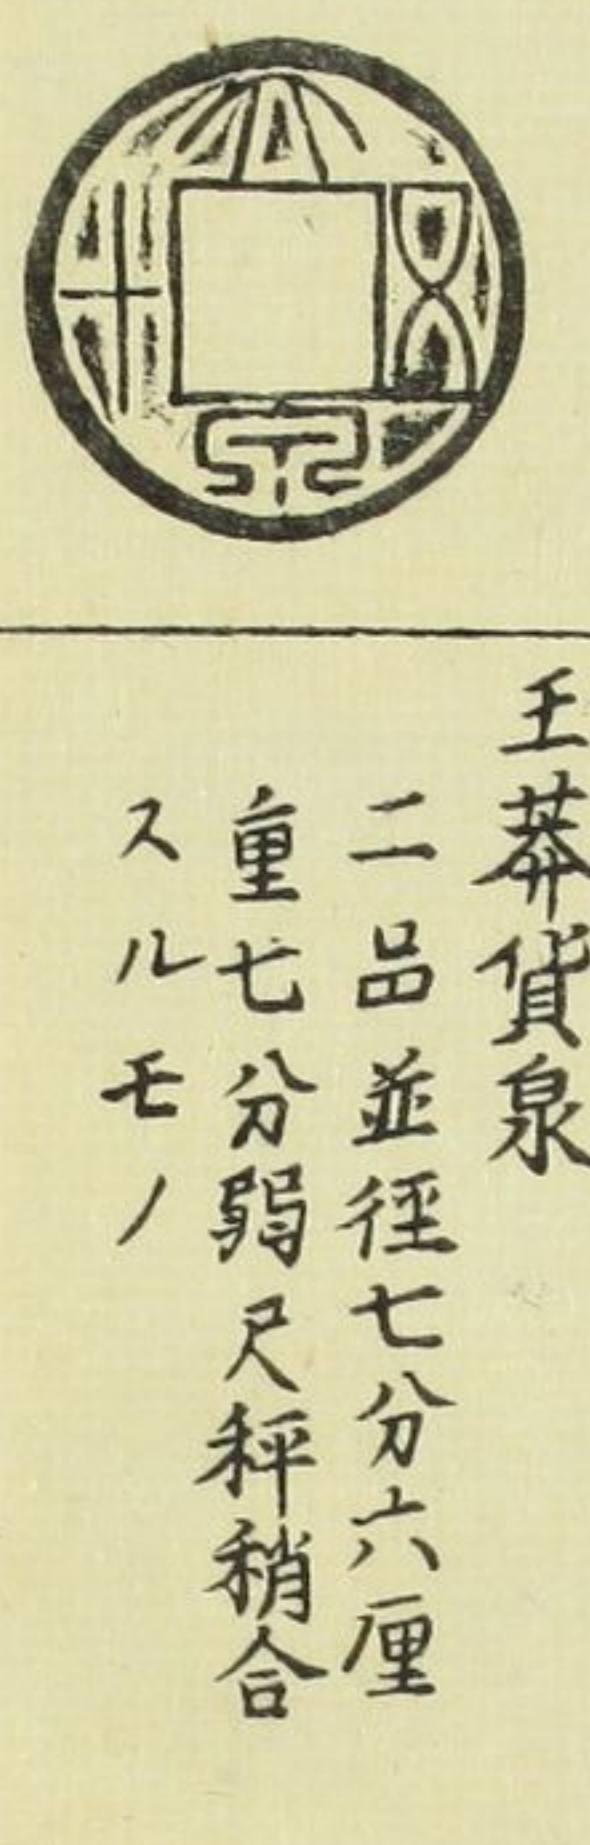 大泉五十
王莽貨泉
二品並徑七分六厘
重七分弱尺秤稍合
スルモノ